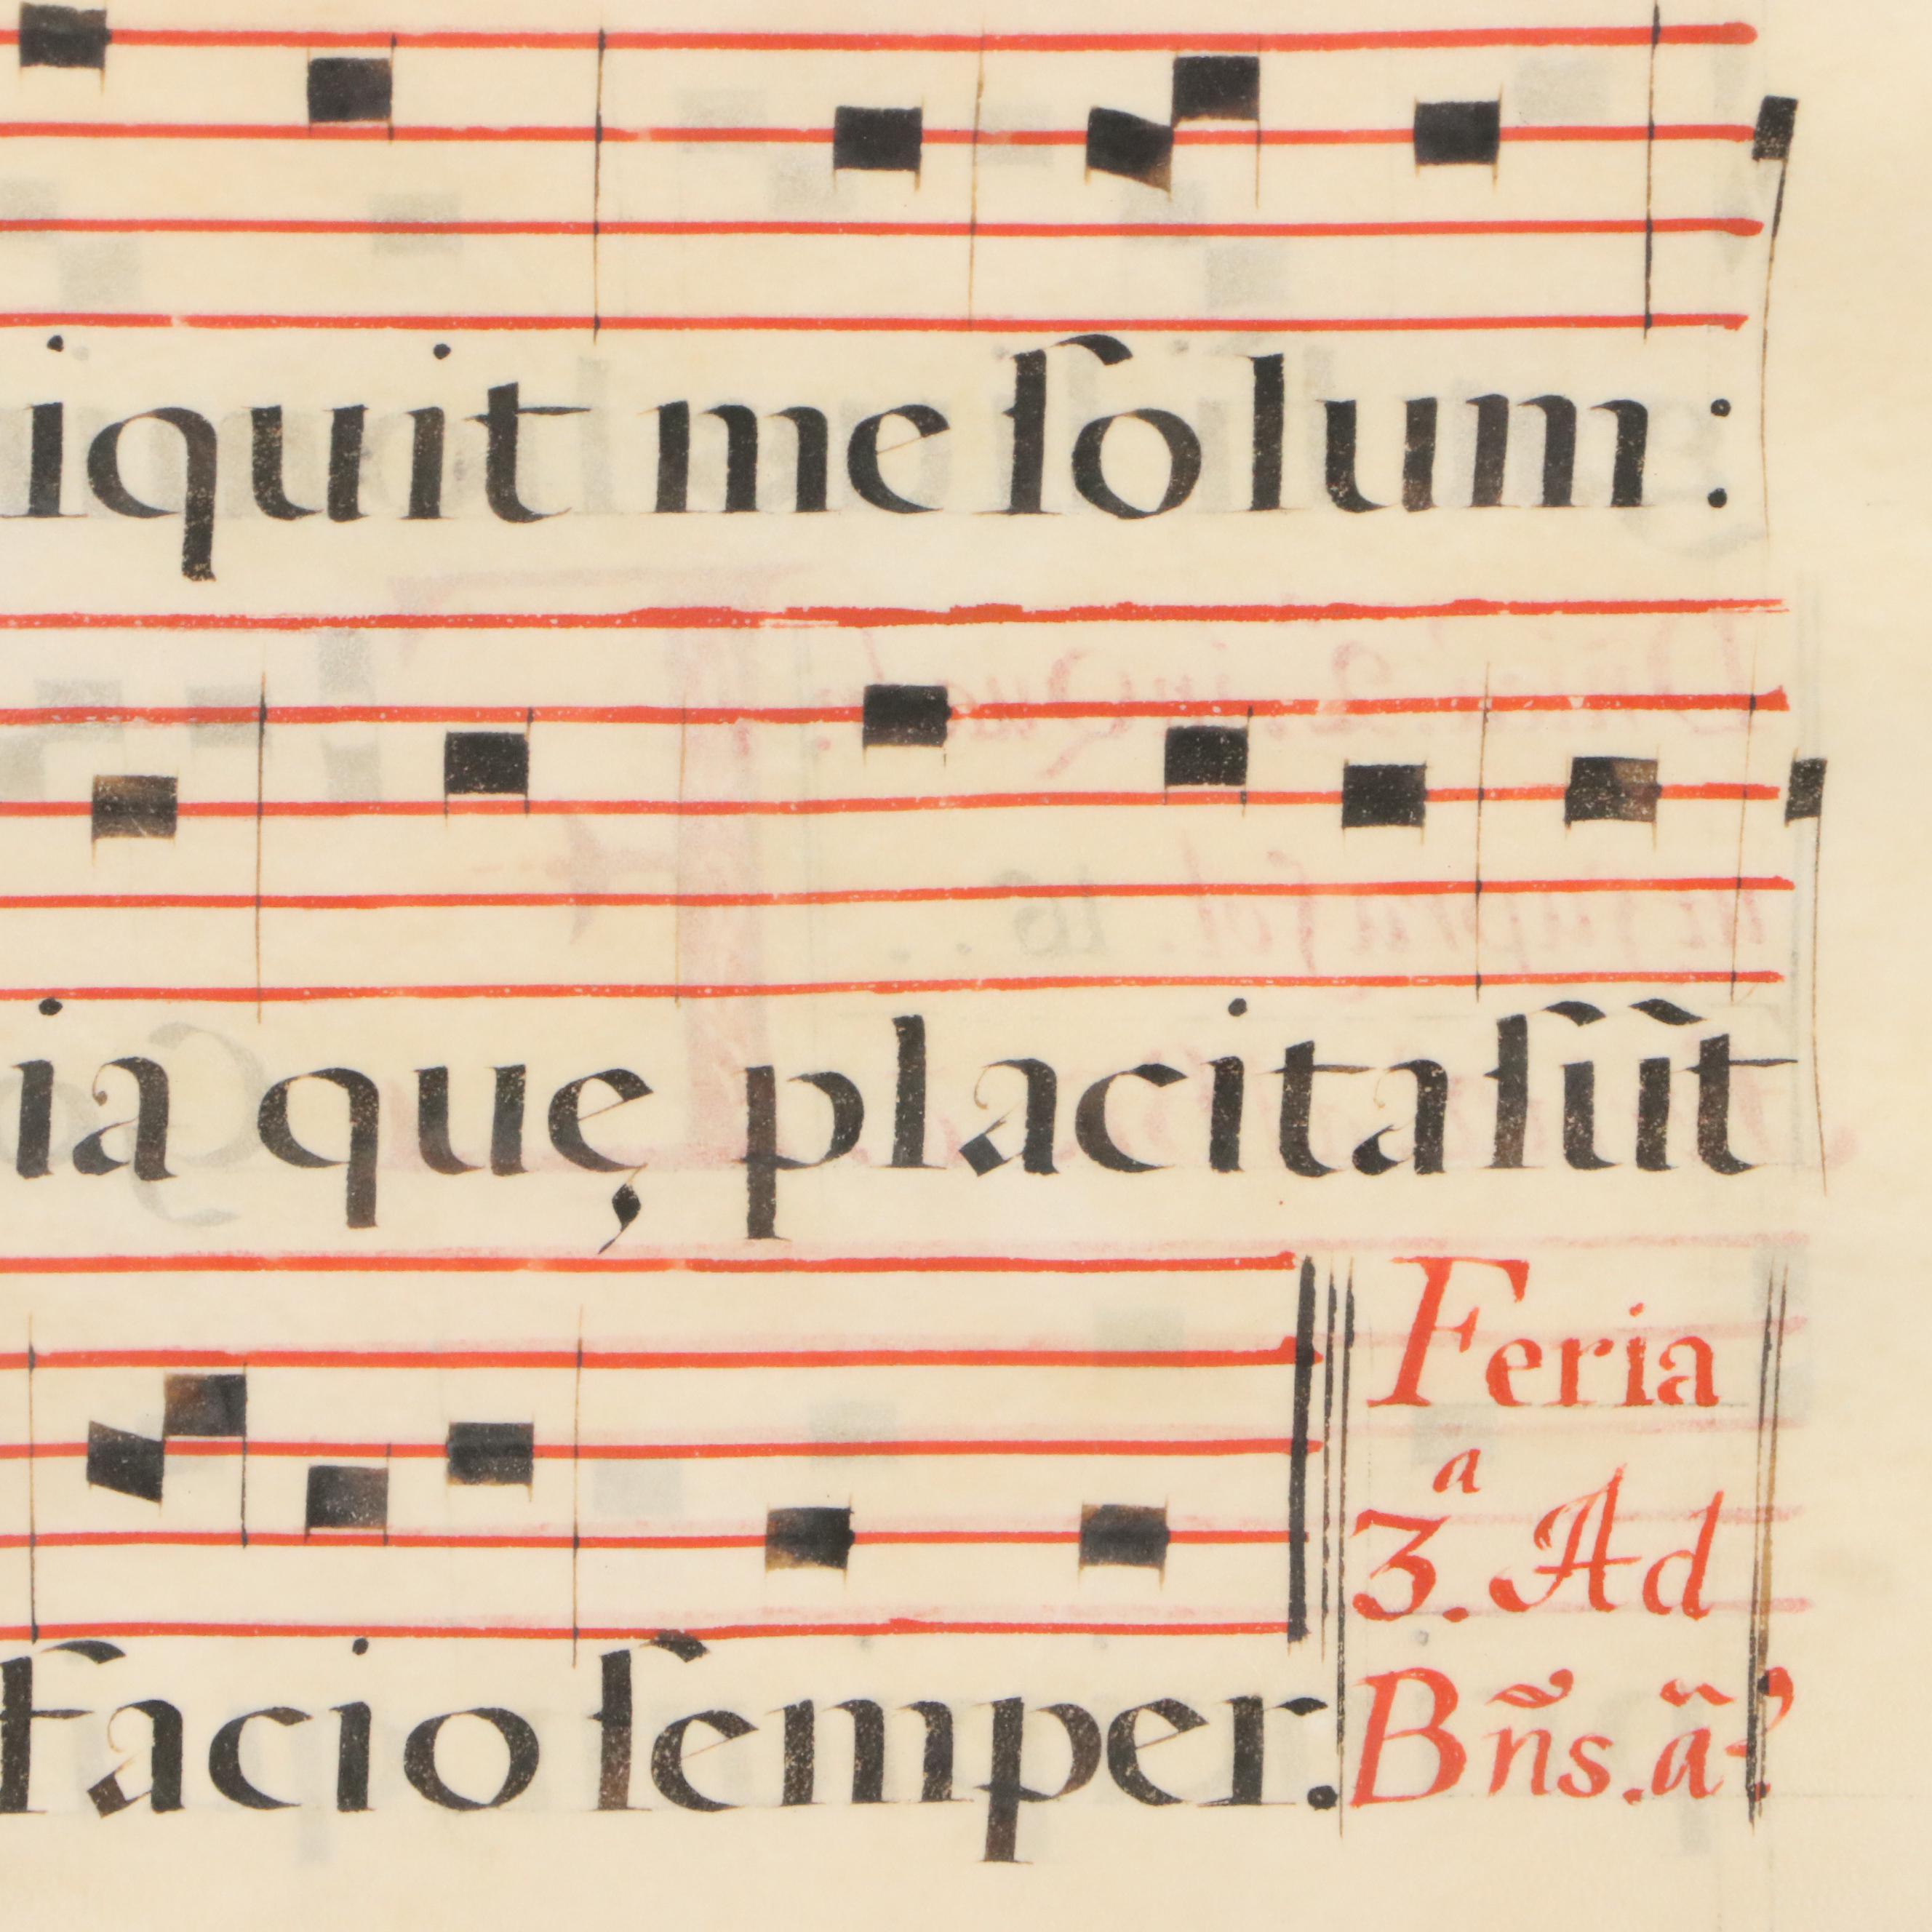 iquit me ſolum:
ia quę placita ſũt
facio ſemper.
Feria
3.ª Ad
Bñs. ã?